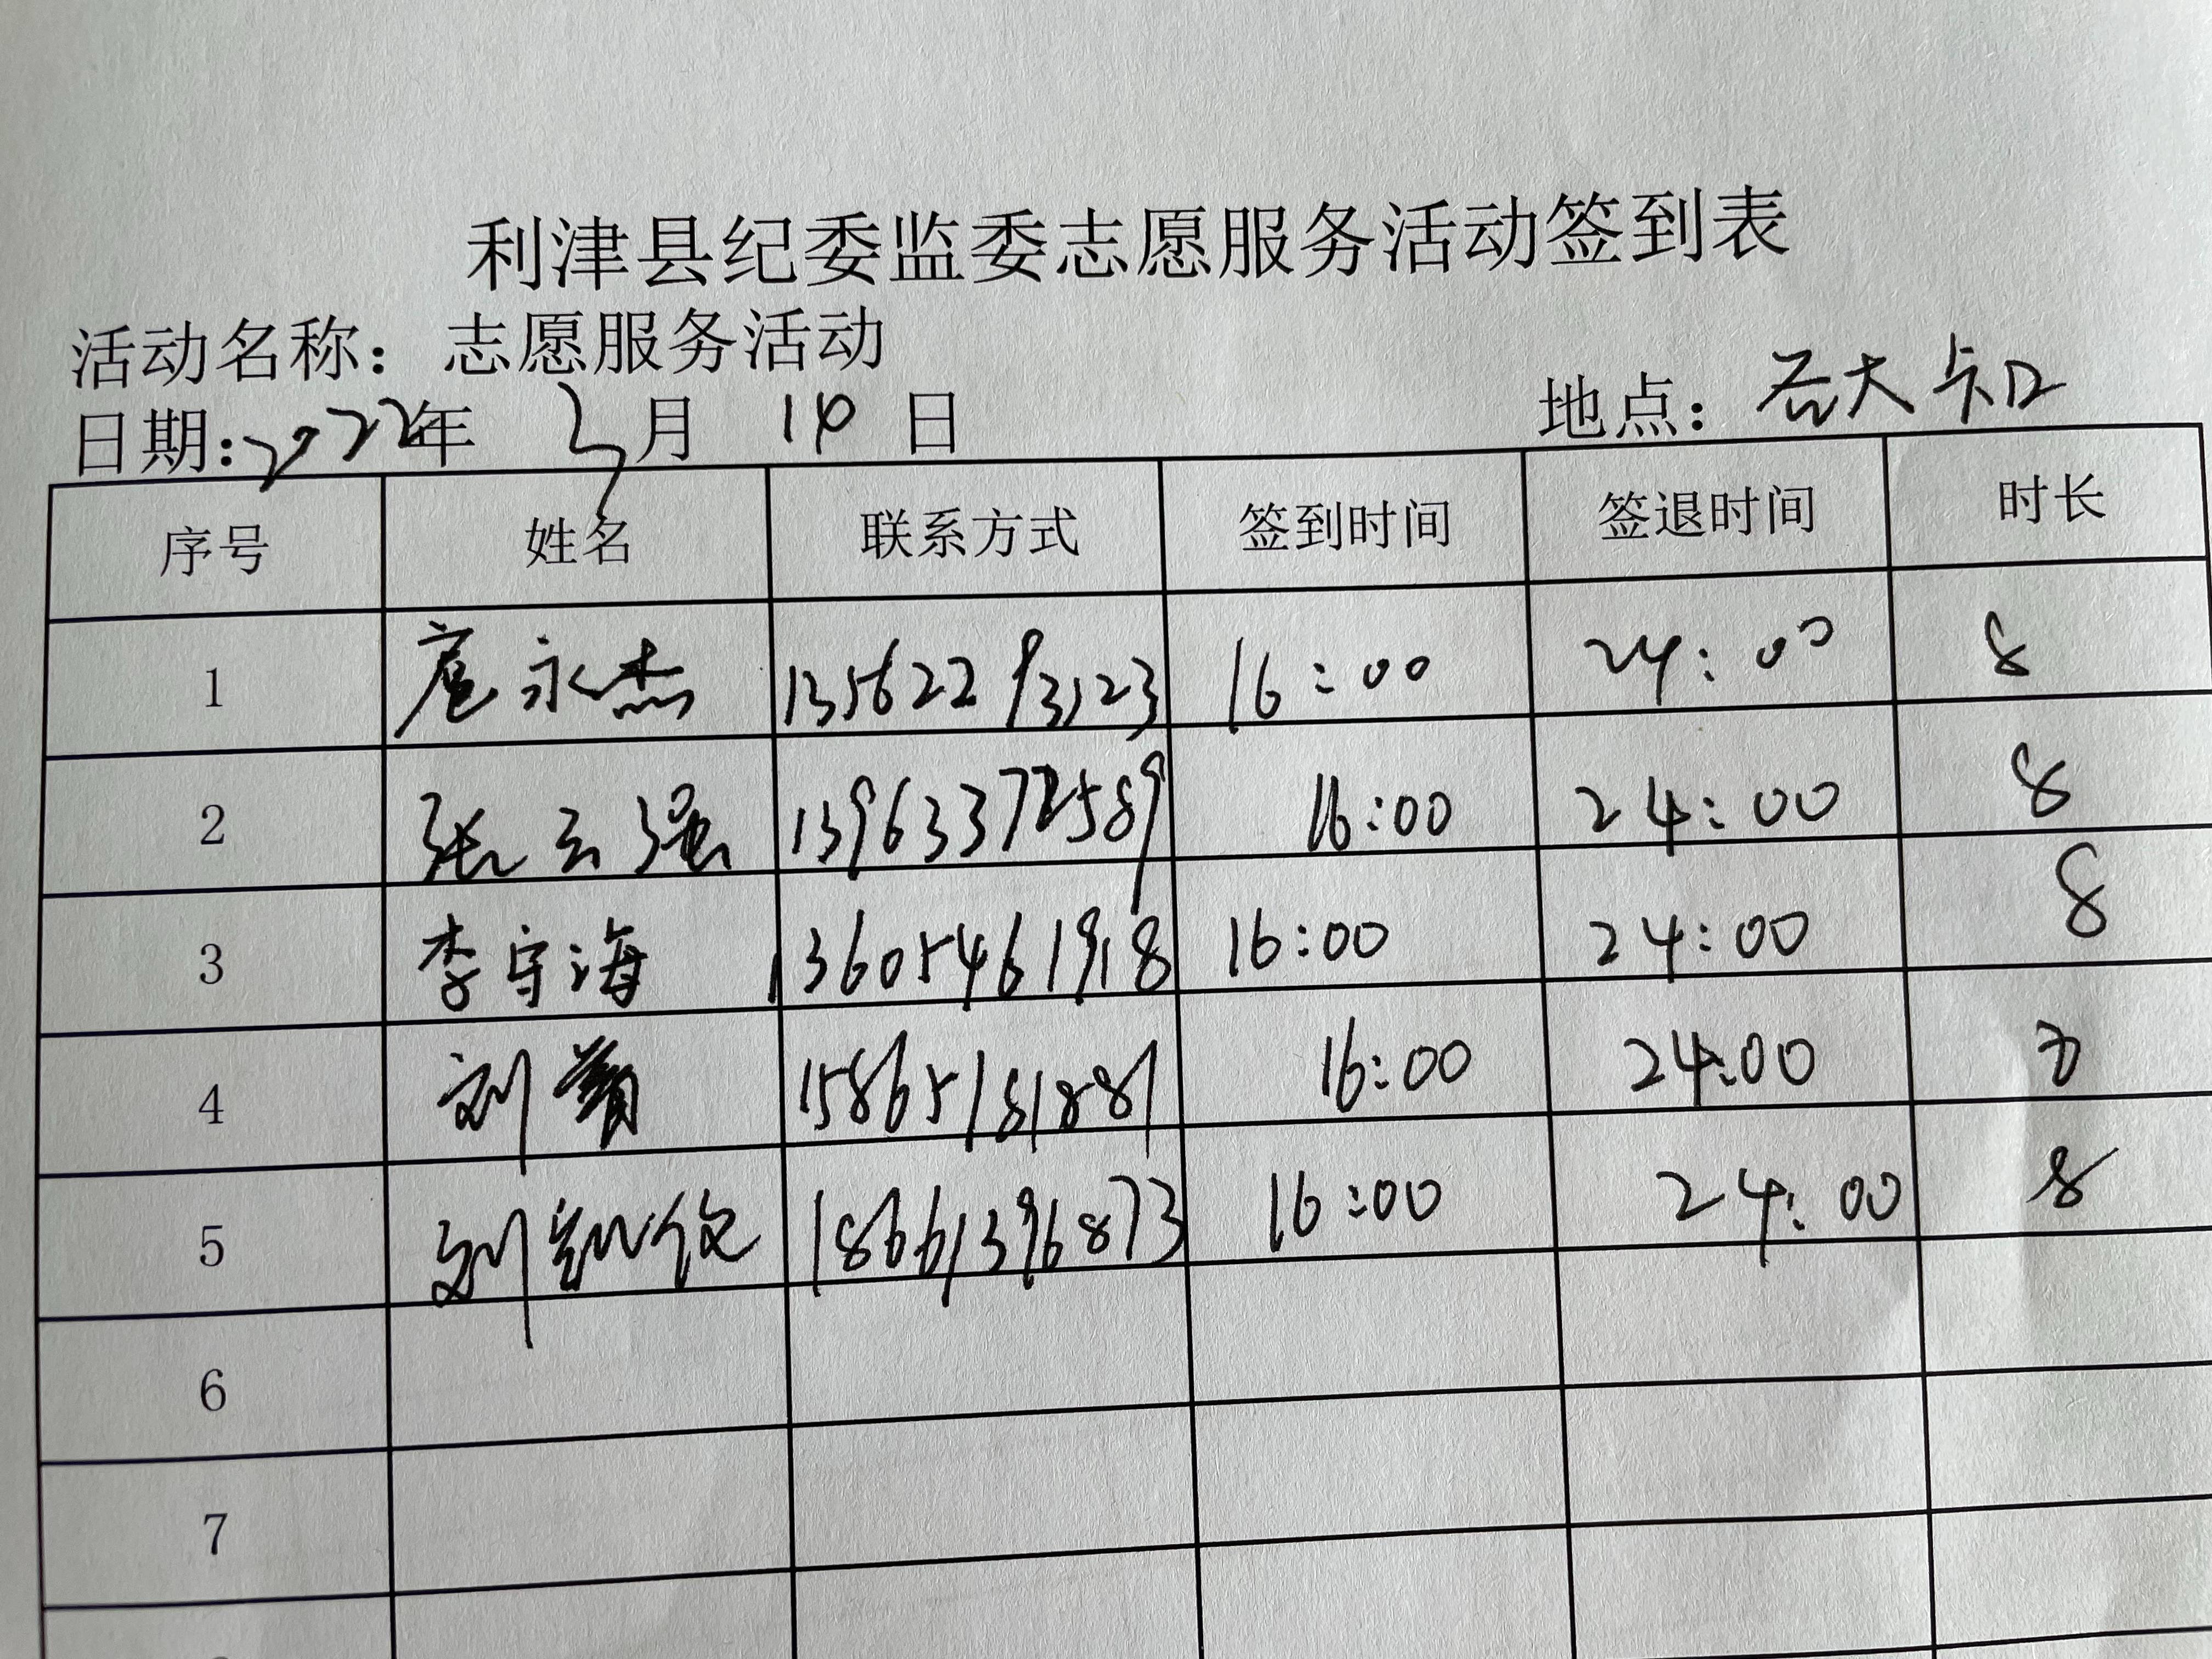 利津县纪委监委志愿服务活动签到表
活动名称：志愿服务活动
日期：2022年 3月 14日 地点：石大卡口
序号 姓名 联系方式 签到时间 签退时间 时长
1 扈永杰 13562293123 16:00 24:00 8
2 张云强 13963372589 16:00 24:00 8
3 李守海 13605461918 16:00 24:00 8
4 刘 15865181881 16:00 24:00 8
5 刘 18661396873 16:00 24:00 8
6
7